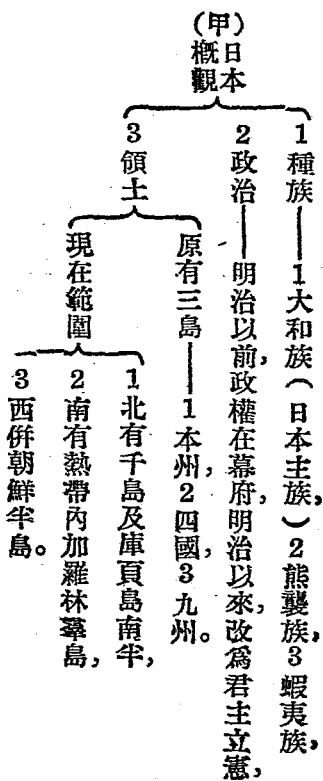 (甲)日本概觀
1種族——1大和族(日本主族,)2熊襲族,3蝦夷族,
2政治——明治以前,政權在幕府,明治以來,改爲君主立憲,
3領土
原有三島——1本州,2四國,3九州。
現在範圍
1北有千島及庫頁島南半,
2南有熱帶內加羅林羣島,
3西併朝鮮半島。